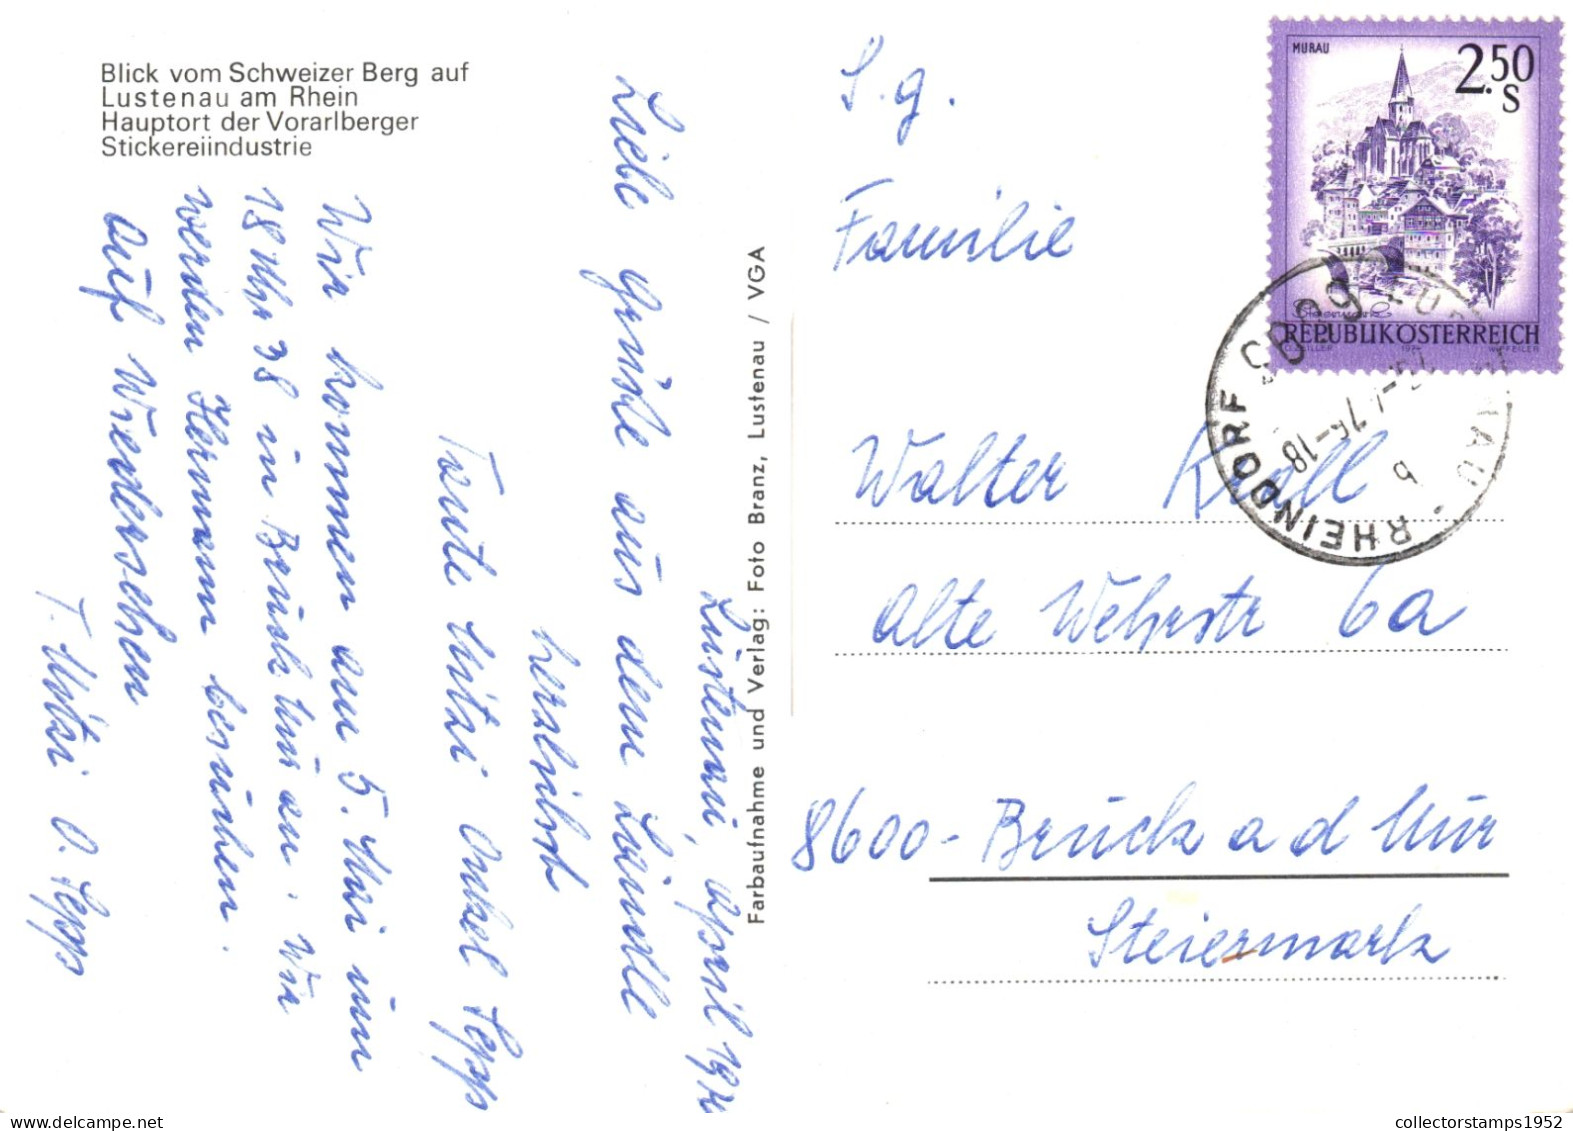 Blick vom Schweizer Berg auf
Lustenau am Rhein
Hauptort der Vorarlberger
Stickereiindustrie
Lustenau, April 1976
Liebe Grüße aus dem Ländle
herzlichst
Tante Mitzi Onkel Sepp
Wir kommen am 5. Mai um
18 Uhr 38 in Bruck Mur an. Wir
werden Hermann besuchen.
Auf Wiedersehen
T. Mitzi O. Sepp
Farbaufnahme und Verlag: Foto Branz, Lustenau / VGA
S.g.
Familie
Walter Kroll
Alte Wehrstr 6a
8600- Bruck a d Mur
Steiermark
MURAU
2.50
S
Steiermark
REPUBLIK ÖSTERREICH
1974
RHEINDORF
6890
76-18
b
collectorstamps1952